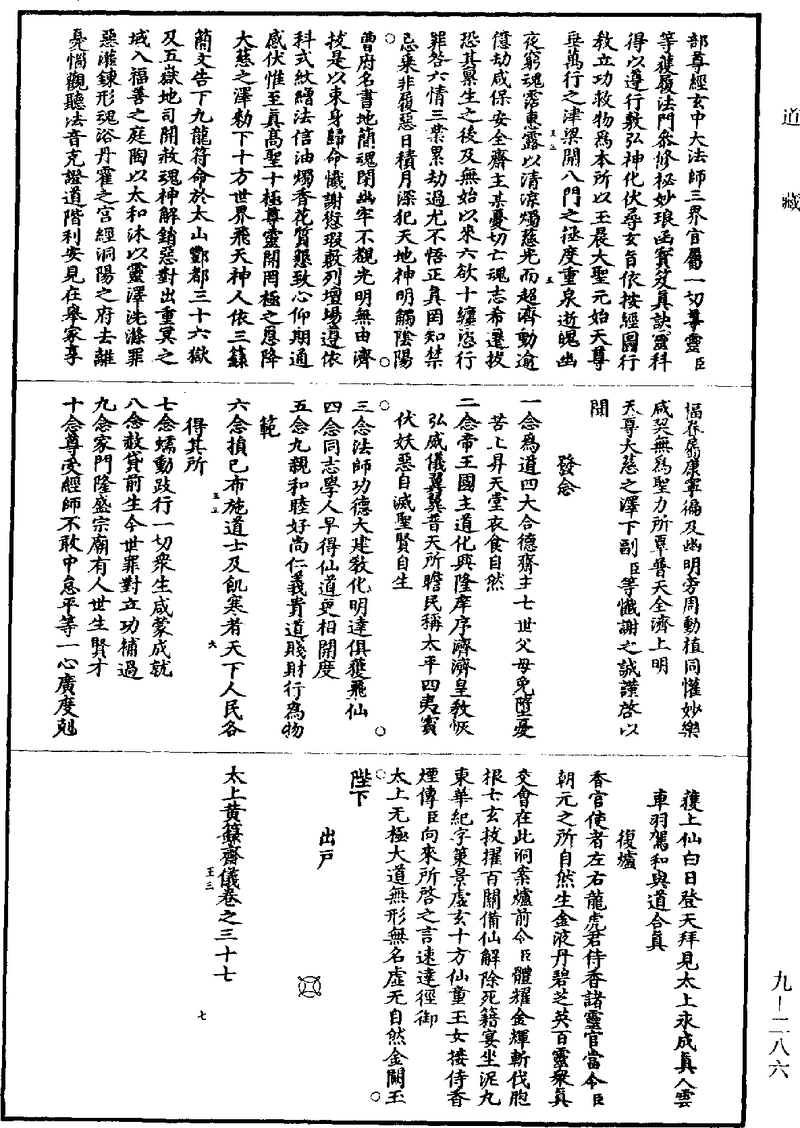 道藏
部尊經玄中大法師三界官屬一切尊靈臣
等獲履法門參修秘妙琅函寶笈真訣靈科
得以遵行敷弘神化伏尋玄旨依按經圖行
教立功救物為本所以玉晨大聖元始天尊
垂萬行之津梁開八門之拯度重泉逝魄幽
夜窮魂霈惠露以清涼燭慈光而超濟動逾
億劫咸保安全齋主某憂切亡魂志希遷拔
恐其累生之後及無始以來六欲十纏恣行
罪咎六情三業累劫過尤不悟正真罔知禁
忌來非履惡日積月深犯天地神明觸陰陽
曹府名書地簡魂閉幽牢不覩光明無由濟
拔是以束身歸命懺謝愆瑕敷列壇場遵依
科式紋繒法信油燭香花質懇致心仰期通
感伏惟至真高聖十極尊靈開罔極之恩降
大慈之澤勑下十方世界飛天神人依三籙
簡文告下九龍符命於太山酆都三十六獄
及五嶽地司開赦魂神解銷惡對出重冥之
域入福善之庭陶以太和沐以靈澤洗滌罪
惡瀅鍊形魂浴丹霍之宮經洞陽之府去離
憂惱觀聽法音克證道階利安見在舉家享
福存歿康寧徧及幽明旁周動植同懽妙樂
咸契無為聖力所覃普天全濟上明
天尊大慈之澤下副臣等懺謝之誠謹啓以
聞
發念
一念為道四大合德齋主七世父母免墮憂
苦上昇天堂衣食自然
二念帝王國主道化興隆庠序濟濟皇教恢
弘威儀翼翼普天所瞻民稱太平四夷賓
伏妖惡自滅聖賢自生
三念法師功德大建教化明達俱獲飛仙
四念同志學人早得仙道更相開度
五念九親和睦好尚仁義貴道賤財行為物
範
六念損已布施道士及飢寒者天下人民各
得其所
七念蠕動跂行一切衆生咸蒙成就
八念赦貸前生今世罪對立功補過
九念家門隆盛宗廟有人世生賢才
十念尊受經師不敢中怠平等一心廣度剋
獲上仙白日登天拜見太上永成真人雲
車羽駕和與道合真
復爐
香官使者左右龍虎君侍香諸靈官當令臣
朝元之所自然生金液丹碧芝英百靈衆真
交會在此洞案爐前令臣體耀金輝斬伐胞
根七玄披擢百關備仙解除死籍宴坐泥丸
東華紀字策景虛玄十方仙童玉女接侍香
煙傳臣向來所啓之言速達徑御
太上无極大道無形無名虛无自然金闕玉
陛下
出戶
太上黃籙齋儀卷之三十七
九—二八六